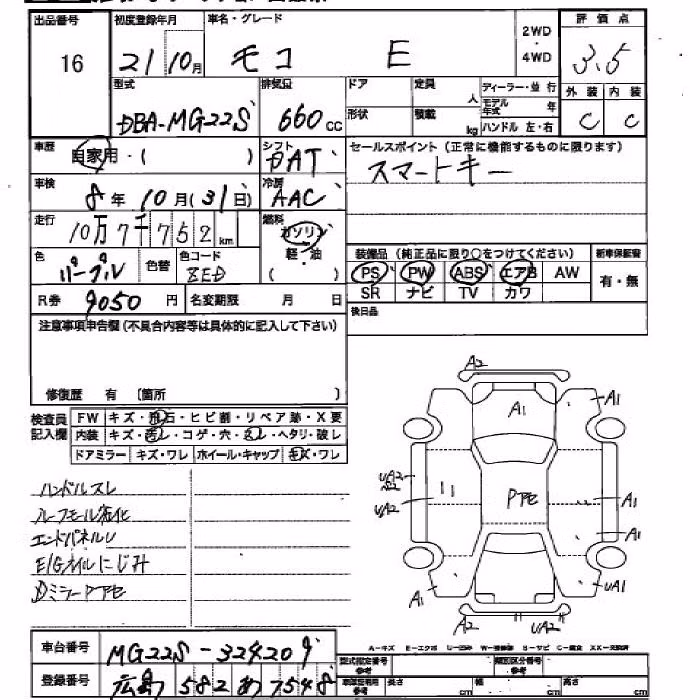 出品番号 初度登録年月 車名・グレード 2WD・4WD 評価点
16 21 10月 モコ E 3.5
型式 排気量 ドア 定員 人 ディーラー・並行 外装 内装
DBA-MG22S 660cc 形状 積載 kg モデル年式 年 ハンドル 左・右 C C
車歴 自家用・( ) シフト DAT セールスポイント(正常に機能するものに限ります)
スマートキー
車検 8年10月(31日) 冷房 AAC
走行 10万7千752km 燃料 ガソリン
軽・油
( )
色 パープル 色替 色コード ZED
装備品(純正品に限り○をつけてください) 新車保証書
PS PW ABS エアB AW 有・無
SR ナビ TV カワ
R券 9050円 名変期限 月 日
後日品
注意事項申告欄(不具合内容等は具体的に記入して下さい)
修復歴 有 〔箇所 〕
検査員記入欄 FW キズ・飛石・ヒビ割・リペア跡・X要
内装 キズ・汚レ・コゲ・穴・スレ・ヘタリ・破レ
ドアミラー キズ・ワレ ホイール・キャップ キズ・ワレ
ハンドルスレ
ルーフモール劣化
エンドパネルU
E/Gオイルにじみ
DミラーPTE
A2
A1 A1
UA2
UA2 PTE A1
A1
A1 UA1
A2 UA2
車台番号 MG22S-324209
登録番号 広島 582 あ 7548
A-キズ E-エクボ U-凹み
型式指定番号 参考 類別区分番号 参考
長さ cm 幅 cm 高さ cm